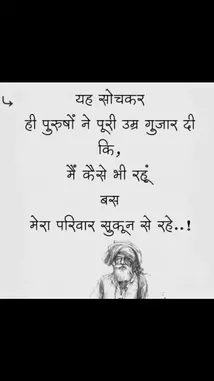 यह सोचकर
ही पुरुषों ने पूरी उम्र गुजार दी
कि,
मैं कैसे भी रहूं
बस
मेरा परिवार सुकून से रहे..!